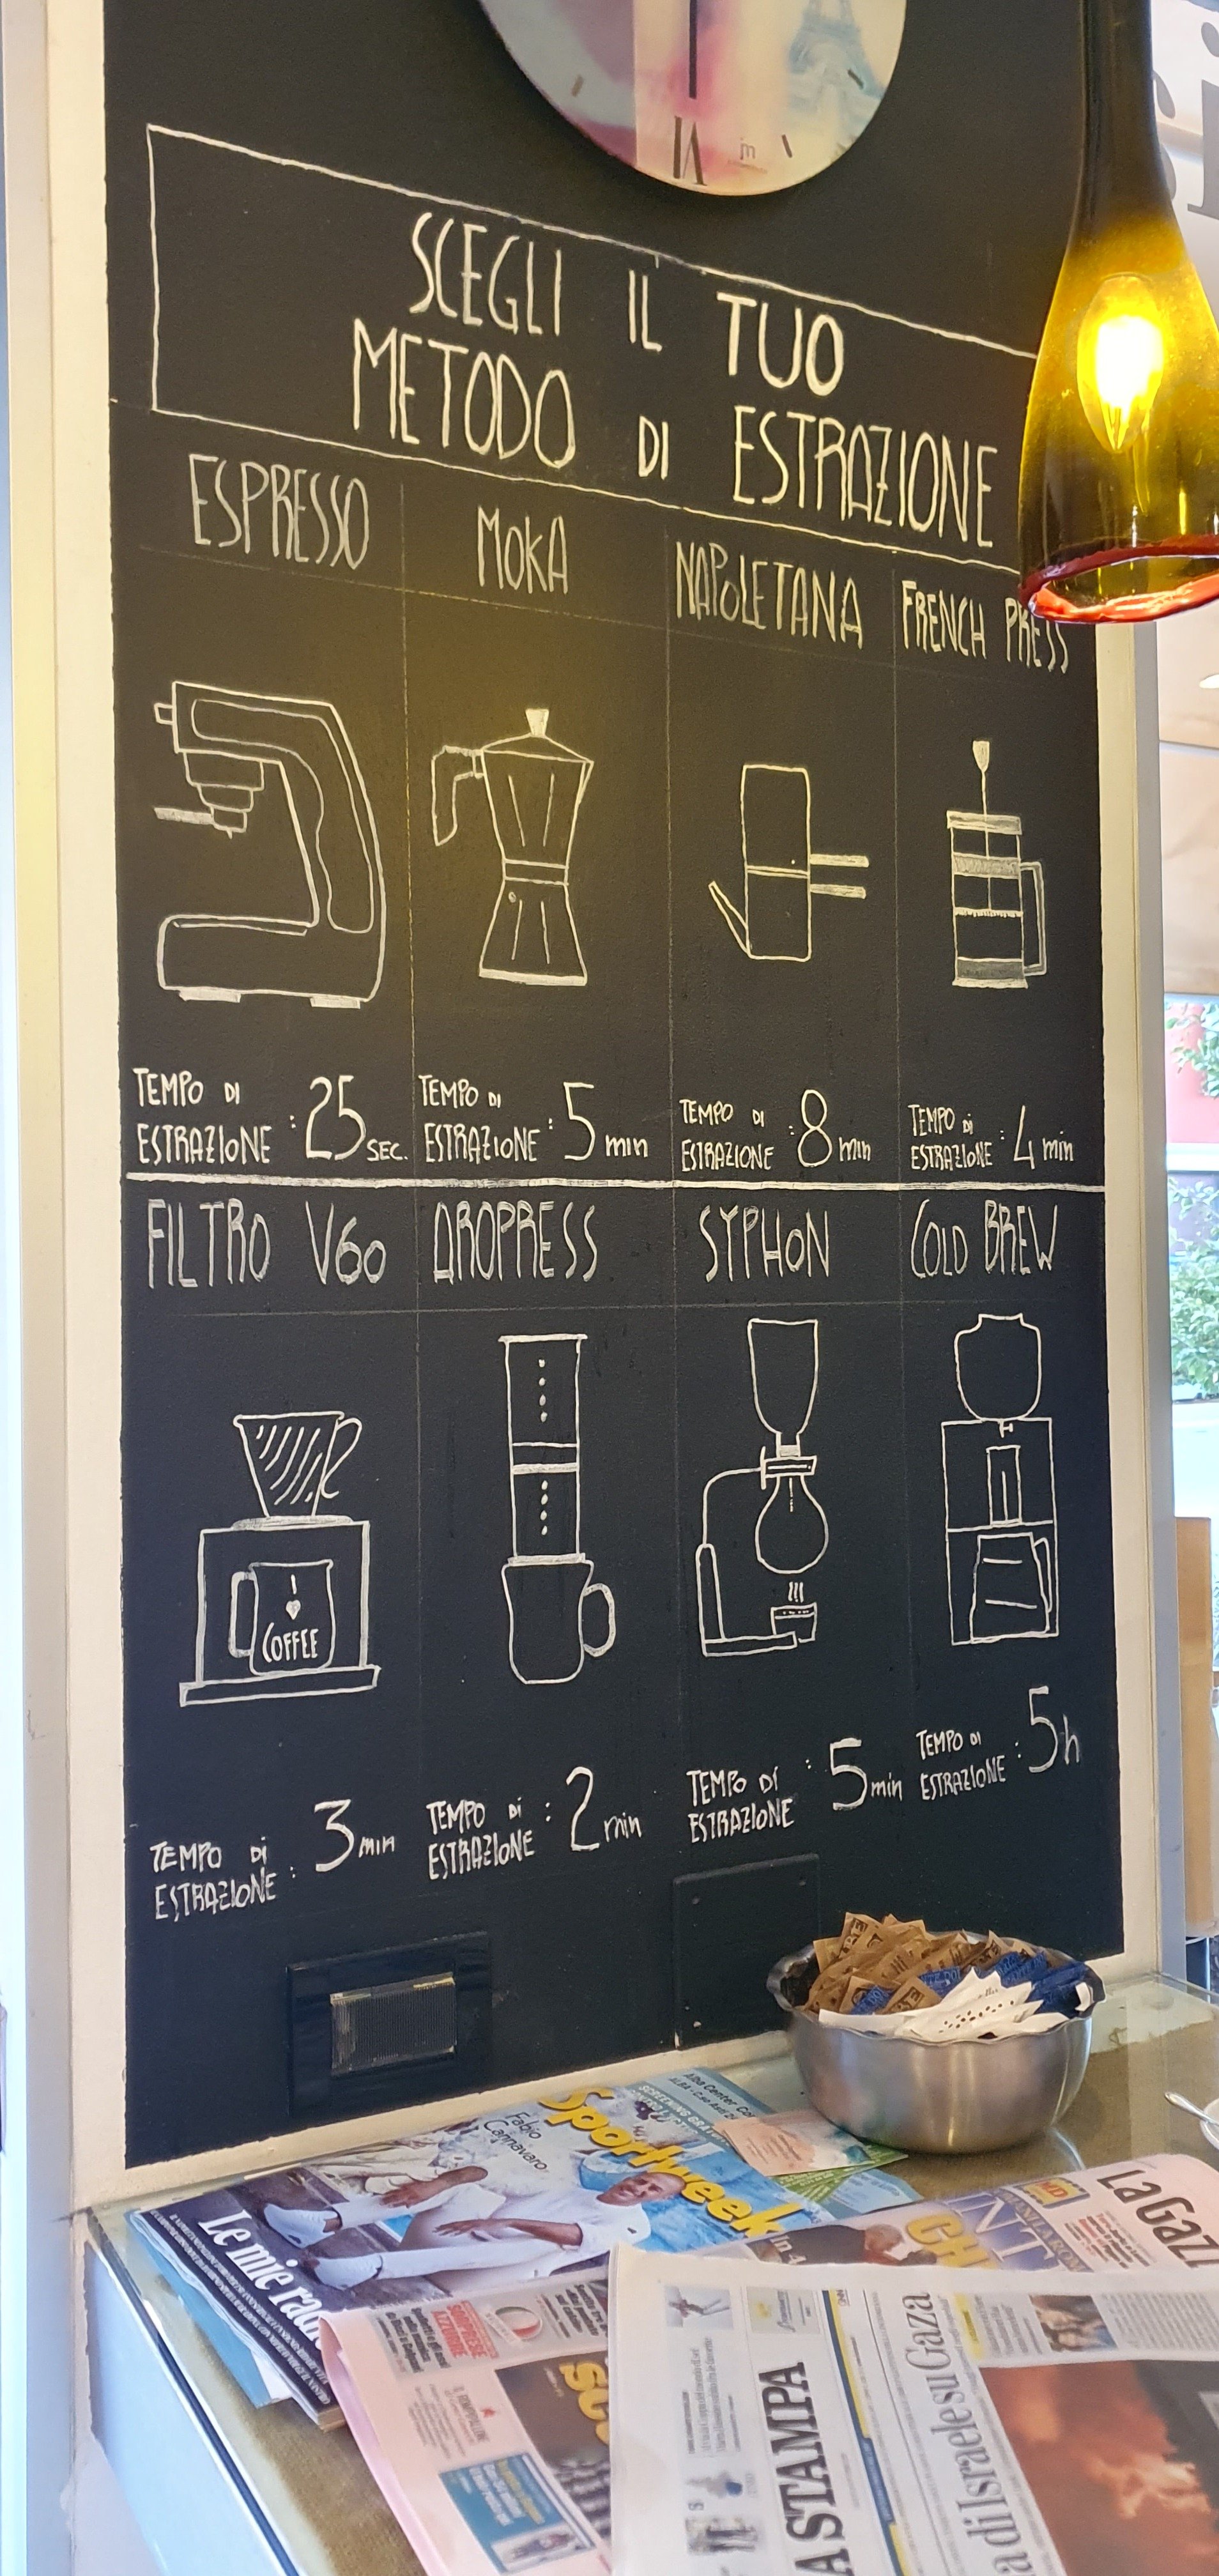 SCEGLI IL TUO
METODO DI ESTRAZIONE
ESPRESSO
MOKA
NAPOLETANA
FRENCH PRESS
TEMPO DI
ESTRAZIONE : 25 SEC.
TEMPO DI
ESTRAZIONE : 5 min
TEMPO DI
ESTRAZIONE : 8 min
TEMPO Di
ESTRAZIONE : 4 min
FILTRO V60
AROPRESS
SYPHON
COLD BREW
COFFEE
TEMPO Di
ESTRAZIONE : 3 min
TEMPO Di
ESTRAZIONE : 2 min
TEMPO Di
ESTRAZIONE : 5 min
TEMPO DI
ESTRAZIONE : 5 h
Sportweek
Fabio
Cannavaro
Le mie
Alba Center
La Gaz
A STAMPA
a di Israele su Gaza